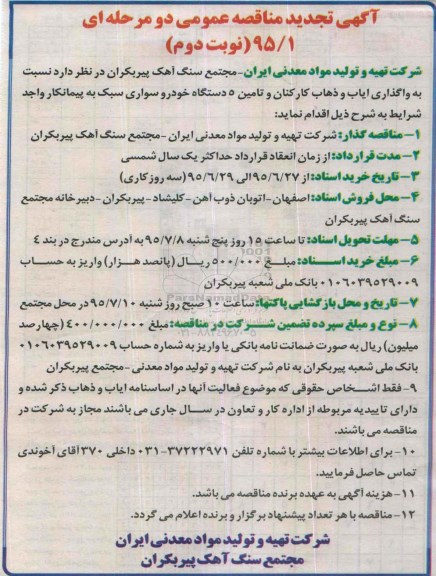 آگهی تجدید مناقصه عمومی دو مرحله ای
۹۵/۱ (نوبت دوم)
شرکت تهیه و تولید مواد معدنی ایران -مجتمع سنگ آهک پیربکران در نظر دارد نسبت
به واگذاری ایاب و ذهاب کارکنان و تامین ۵ دستگاه خودرو سواری سبک به پیمانکار واجد
شرایط به شرح ذیل اقدام نماید:
۱- مناقصه گذار: شرکت تهیه و تولید مواد معدنی ایران -مجتمع سنگ آهک پیربکران
۲- مدت قرارداد: از زمان انعقاد قرارداد حداکثر یک سال شمسی
۳- تاریخ خرید اسناد: از ۹۵/۶/۲۷ الی ۹۵/۶/۲۹ (سه روز کاری)
۴- محل فروش اسناد: اصفهان-اتوبان ذوب آهن-کلیشاد-پیربکران-دبیرخانه مجتمع
سنگ آهک پیربکران
۵- مهلت تحویل اسناد: تا ساعت ۱۵ روز پنج شنبه ۹۵/۷/۸ به آدرس مندرج در بند ۴
۶- مبلغ خرید اسناد: مبلغ ۵۰۰/۰۰۰ ریال (پانصد هزار) واریز به حساب
۰۱۰۶۰۳۹۵۲۹۰۰۹ بانک ملی شعبه پیربکران
۷- تاریخ و محل بازگشایی پاکتها: ساعت ۱۰ صبح روز شنبه ۹۵/۷/۱۰ در محل مجتمع
۸- نوع و مبلغ سپرده تضمین شرکت در مناقصه: مبلغ ۴۰۰/۰۰۰/۰۰۰ (چهار صد
میلیون) ریال به صورت ضمانت نامه بانکی یا واریز به شماره حساب ۰۱۰۶۰۳۹۵۲۹۰۰۹
بانک ملی شعبه پیربکران به نام شرکت تهیه و تولید مواد معدنی -مجتمع پیربکران
۹- فقط اشخاص حقوقی که موضوع فعالیت آنها در اساسنامه ایاب و ذهاب ذکر شده و
دارای تاییدیه مربوطه از اداره کار و تعاون در سال جاری می باشند مجاز به شرکت در
مناقصه می باشند.
۱۰- برای اطلاعات بیشتر با شماره تلفن ۳۷۲۲۲۹۷۱-۰۳۱ داخلی ۳۷۰ آقای آخوندی
تماس حاصل فرمایید.
۱۱- هزینه آگهی به عهده برنده مناقصه می باشد.
۱۲- مناقصه با هر تعداد پیشنهاد برگزار و برنده اعلام می گردد.
شرکت تهیه و تولید مواد معدنی ایران
مجتمع سنگ آهک پیربکران